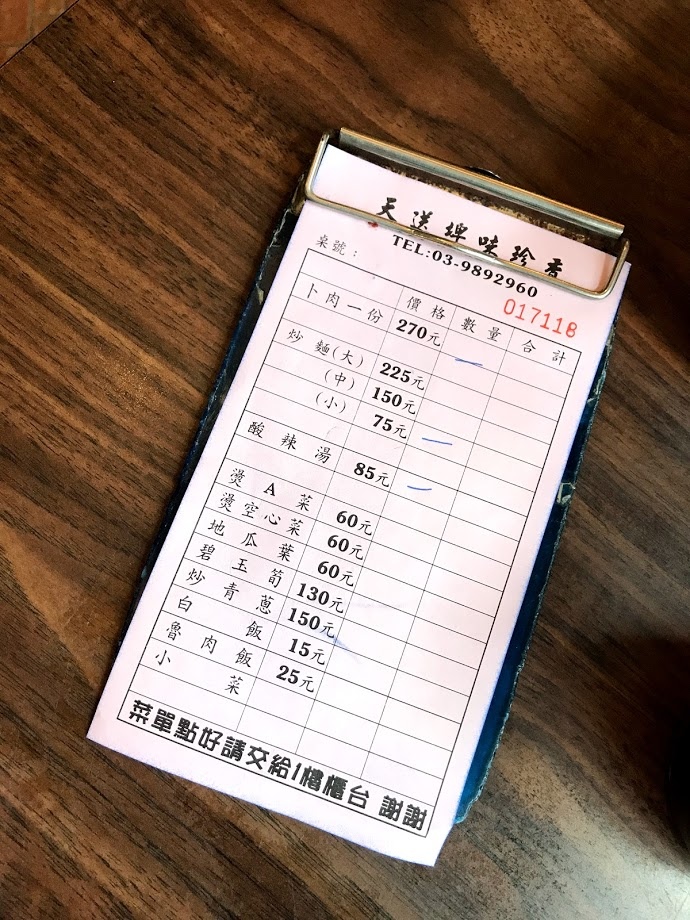 天送埤味珍香
TEL:03-9892960
桌號：
017118
價格 數量 合計
卜肉一份 270元 一
炒麵(大) 225元
(中) 150元
(小) 75元 一
酸辣湯 85元 一
燙A菜 60元
燙空心菜 60元
地瓜葉 60元
碧玉筍 130元
炒青蔥 150元
白飯 15元
魯肉飯 25元
小菜
菜單點好請交給1樓櫃台 謝謝